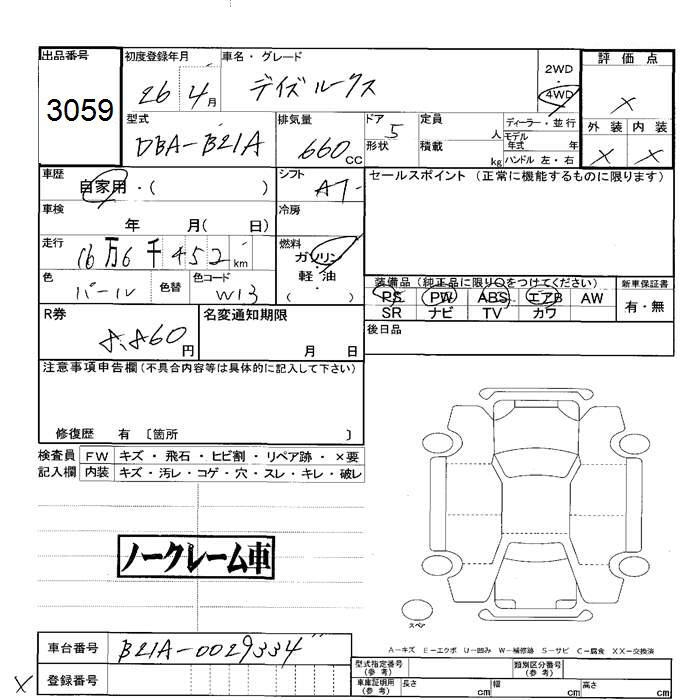 出品番号
3059
初度登録年月
26 4月
車名・グレード
デイズルークス
2WD・4WD
評価点
×
外装 内装
× ×
型式
DBA-B21A
排気量
660cc
ドア 5
形状
定員 人
積載 kg
ディーラー・並行
モデル年式 年
ハンドル 左・右
車歴
自家用・( )
シフト
AT
セールスポイント(正常に機能するものに限ります)
車検
年 月( 日)
冷房
走行
16万6千452km
燃料
ガソリン
軽・油
( )
色
パール
色替
色コード
W13
装備品(純正品に限り○をつけてください)
PS PW ABS エアB AW
SR ナビ TV カワ
新車保証書
有・無
後日品
R券
8,860円
名変通知期限
月 日
注意事項申告欄(不具合内容等は具体的に記入して下さい)
修復歴 有 〔箇所 〕
検査員記入欄
FW キズ・飛石・ヒビ割・リペア跡・×要
内装 キズ・汚レ・コゲ・穴・スレ・キレ・破レ
ノークレーム車
スペア
A-キズ E-エクボ U-凹み W-補修跡 S-サビ C-腐食 XX-交換済
車台番号
B21A-0029334
×
登録番号
型式指定番号(参考)
類別区分番号(参考)
車庫証明用(参考)
長さ cm
幅 cm
高さ cm